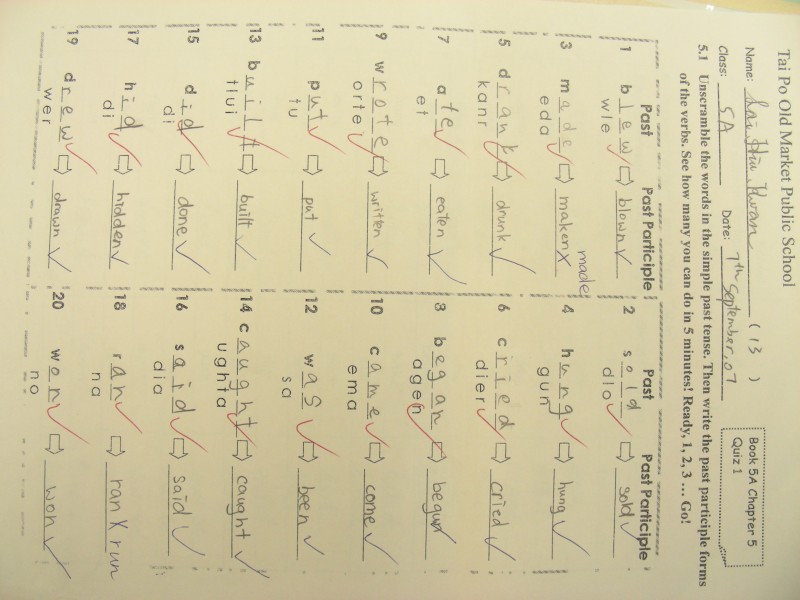 Tai Po Old Market Public School
Name: Lai Hiu Kwan ( 13 )
Class: 5A Date: 7th September, 07
Book 5A Chapter 5
Quiz 1
5.1 Unscramble the words in the simple past tense. Then write the past participle forms
of the verbs. See how many you can do in 5 minutes! Ready, 1, 2, 3 … Go!
Past Past Participle Past Past Participle
1 blew blown 2 sold sold
wle dlo
made
3 made maken 4 hung hung
eda gun
5 drank drunk 6 cried cried
kanr dier
7 ate eaten 8 began begun
et agen
9 wrote written 10 came come
orte ema
11 put put 12 was been
tu sa
13 built built 14 caught caught
tlui ughta
15 did done 16 said said
di dia
17 hid hidden 18 ran ran run
di na
19 drew drawn 20 won won
wer no